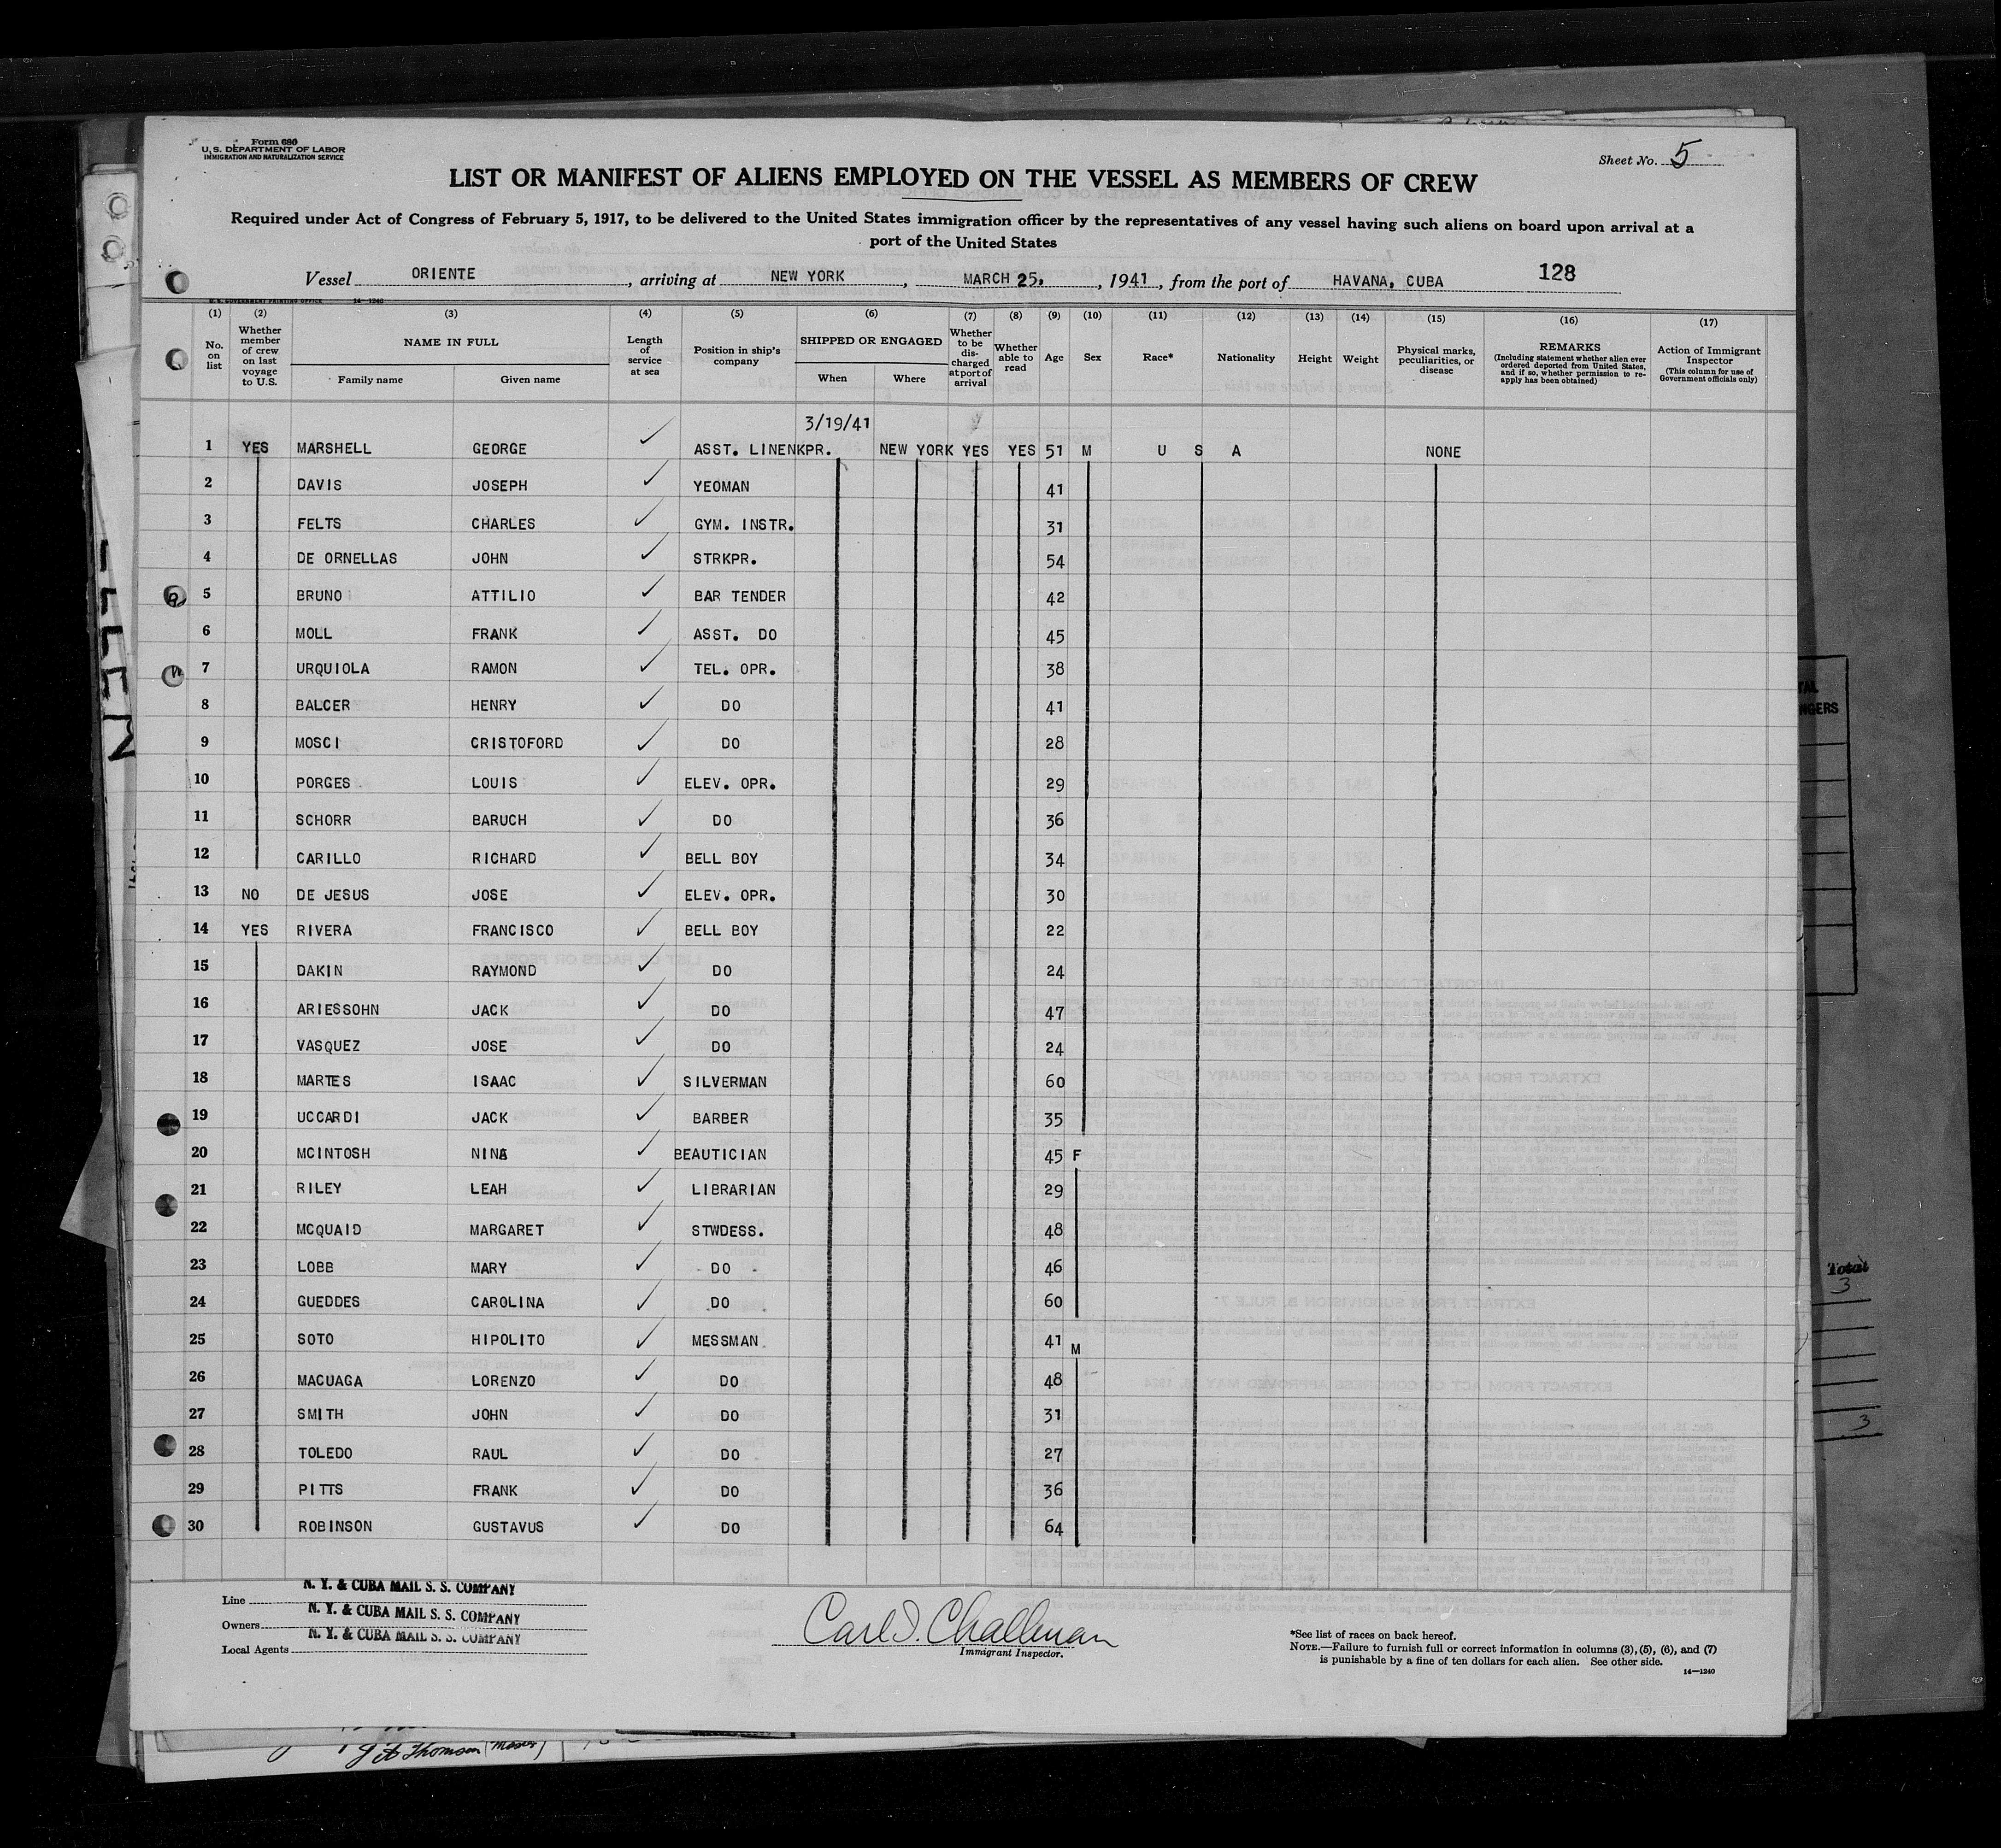 Form 680
U. S. DEPARTMENT OF LABOR
IMMIGRATION AND NATURALIZATION SERVICE
Sheet No. 5
LIST OR MANIFEST OF ALIENS EMPLOYED ON THE VESSEL AS MEMBERS OF CREW
Required under Act of Congress of February 5, 1917, to be delivered to the United States immigration officer by the representatives of any vessel having such aliens on board upon arrival at a
port of the United States
Vessel ORIENTE, arriving at NEW YORK, MARCH 25, 1941, from the port of HAVANA, CUBA 128
U. S. GOVERNMENT PRINTING OFFICE 14—1240
(1) (2) (3) (4) (5) (6) (7) (8) (9) (10) (11) (12) (13) (14) (15) (16) (17)
No. on list
Whether member of crew on last voyage to U.S.
NAME IN FULL
Family name
Given name
Length of service at sea
Position in ship's company
SHIPPED OR ENGAGED
When
Where
Whether to be discharged at port of arrival
Whether able to read
Age
Sex
Race*
Nationality
Height
Weight
Physical marks, peculiarities, or disease
REMARKS
(Including statement whether alien ever ordered deported from United States, and if so, whether permission to reapply has been obtained)
Action of Immigrant Inspector
(This column for use of Government officials only)
3/19/41
1 YES MARSHELL GEORGE ✓ ASST. LINENKPR. NEW YORK YES YES 51 M U S A NONE
2 DAVIS JOSEPH ✓ YEOMAN 41
3 FELTS CHARLES ✓ GYM. INSTR. 31
4 DE ORNELLAS JOHN ✓ STRKPR. 54
5 BRUNO ATTILIO ✓ BAR TENDER 42
6 MOLL FRANK ✓ ASST. DO 45
7 URQUIOLA RAMON ✓ TEL. OPR. 38
8 BALCER HENRY ✓ DO 41
9 MOSCI CRISTOFORD ✓ DO 28
10 PORGES LOUIS ✓ ELEV. OPR. 29
11 SCHORR BARUCH ✓ DO 36
12 CARILLO RICHARD ✓ BELL BOY 34
13 NO DE JESUS JOSE ✓ ELEV. OPR. 30
14 YES RIVERA FRANCISCO ✓ BELL BOY 22
15 DAKIN RAYMOND ✓ DO 24
16 ARIESSOHN JACK ✓ DO 47
17 VASQUEZ JOSE ✓ DO 24
18 MARTES ISAAC ✓ SILVERMAN 60
19 UCCARDI JACK ✓ BARBER 35
20 MCINTOSH NINA ✓ BEAUTICIAN 45 F
21 RILEY LEAH ✓ LIBRARIAN 29
22 MCQUAID MARGARET ✓ STWDESS. 48
23 LOBB MARY ✓ DO 46
24 GUEDDES CAROLINA ✓ DO 60
25 SOTO HIPOLITO ✓ MESSMAN 41 M
26 MACUAGA LORENZO ✓ DO 48
27 SMITH JOHN ✓ DO 31
28 TOLEDO RAUL ✓ DO 27
29 PITTS FRANK ✓ DO 36
30 ROBINSON GUSTAVUS ✓ DO 64
Line N. Y. & CUBA MAIL S. S. COMPANY
Owners N. Y. & CUBA MAIL S. S. COMPANY
Local Agents N. Y. & CUBA MAIL S. S. COMPANY
Carl J. Challman
Immigrant Inspector.
*See list of races on back hereof.
NOTE.—Failure to furnish full or correct information in columns (3), (5), (6), and (7)
is punishable by a fine of ten dollars for each alien. See other side.
14—1240
Total
3
3